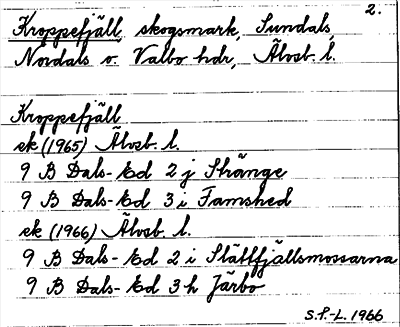 2.
Kroppefjäll, skogsmark, Sundals,
Nordals o. Valbo hdr, Älvsb. l.
Kroppefjäll
ek (1965) Älvsb. l.
9 B Dals-Ed 2 j Stränge
9 B Dals-Ed 3 i Tamshed
ek (1966) Älvsb. l.
9 B Dals-Ed 2 i Slättfjällsmossarna
9 B Dals-Ed 3 h Järbo
S.P-L. 1966